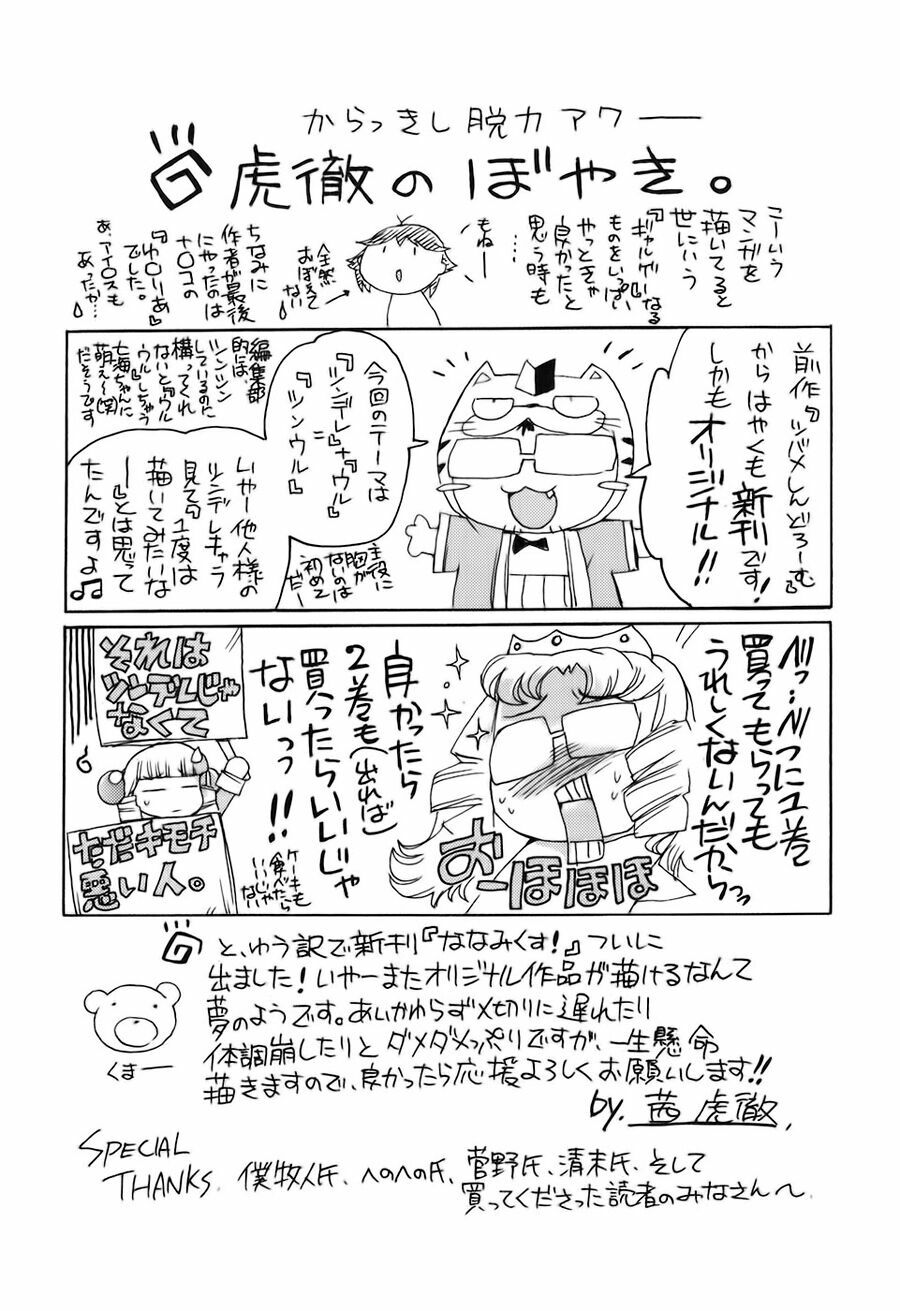 からっきし脱力アワー
虎徹のぼやき。
こーいう
マンガを
描いてると
世にいう
『ギャルゲ』なる
ものをいっぱい
やっときゃ
良かったと
思う時も
……
もねー
全然
おぼえて
ない
ちなみに
作者が最後
にやったのは
ナ○コの
『ゆ○りあ』
でした。
あ、アイ○スも
あったか…
前作『ツバメしんどろーむ』
からはやくも新刊です!
しかもオリジナル!!
今回のテーマは
『ツンデレ』+『ウル』
=
『ツンウル』
主役に
胸が
ないのは
初めて
だー
編集部
的には、
ツンツン
しているのに
構ってくれ
ないと『ウル
ウル』しちゃう
七海ちゃんに
萌え〜(笑)
だそうです
いやー他人様の
ツンデレキャラ
見て『1度は
描いてみたいな
ー』とは思って
たんですよ♫
べっ…べつに1巻
買ってもらっても
うれしくないんだからっ
良かったら
2巻も(出れば)
買ったらいいじゃ
ないっっ!!
ケーキも
食べたら
いいじゃ
ない
おーほほほほ
それは
ツンデレじゃ
なくて
ただキモチ
悪い人。
と、ゆう訳で新刊『ななみくす!』ついに
出ました!いやーまたオリジナル作品が描けるなんて
夢のようです。あいかわらず〆切りに遅れたり
体調崩したりとダメダメっぷりですが、一生懸命
描きますので、良かったら応援よろしくお願いします!!
くまー
by. 茜虎徹
SPECIAL
THANKS. 僕牧人氏、へのへの氏、菅野氏、清末氏、そして
買ってくださった読者のみなさん〜